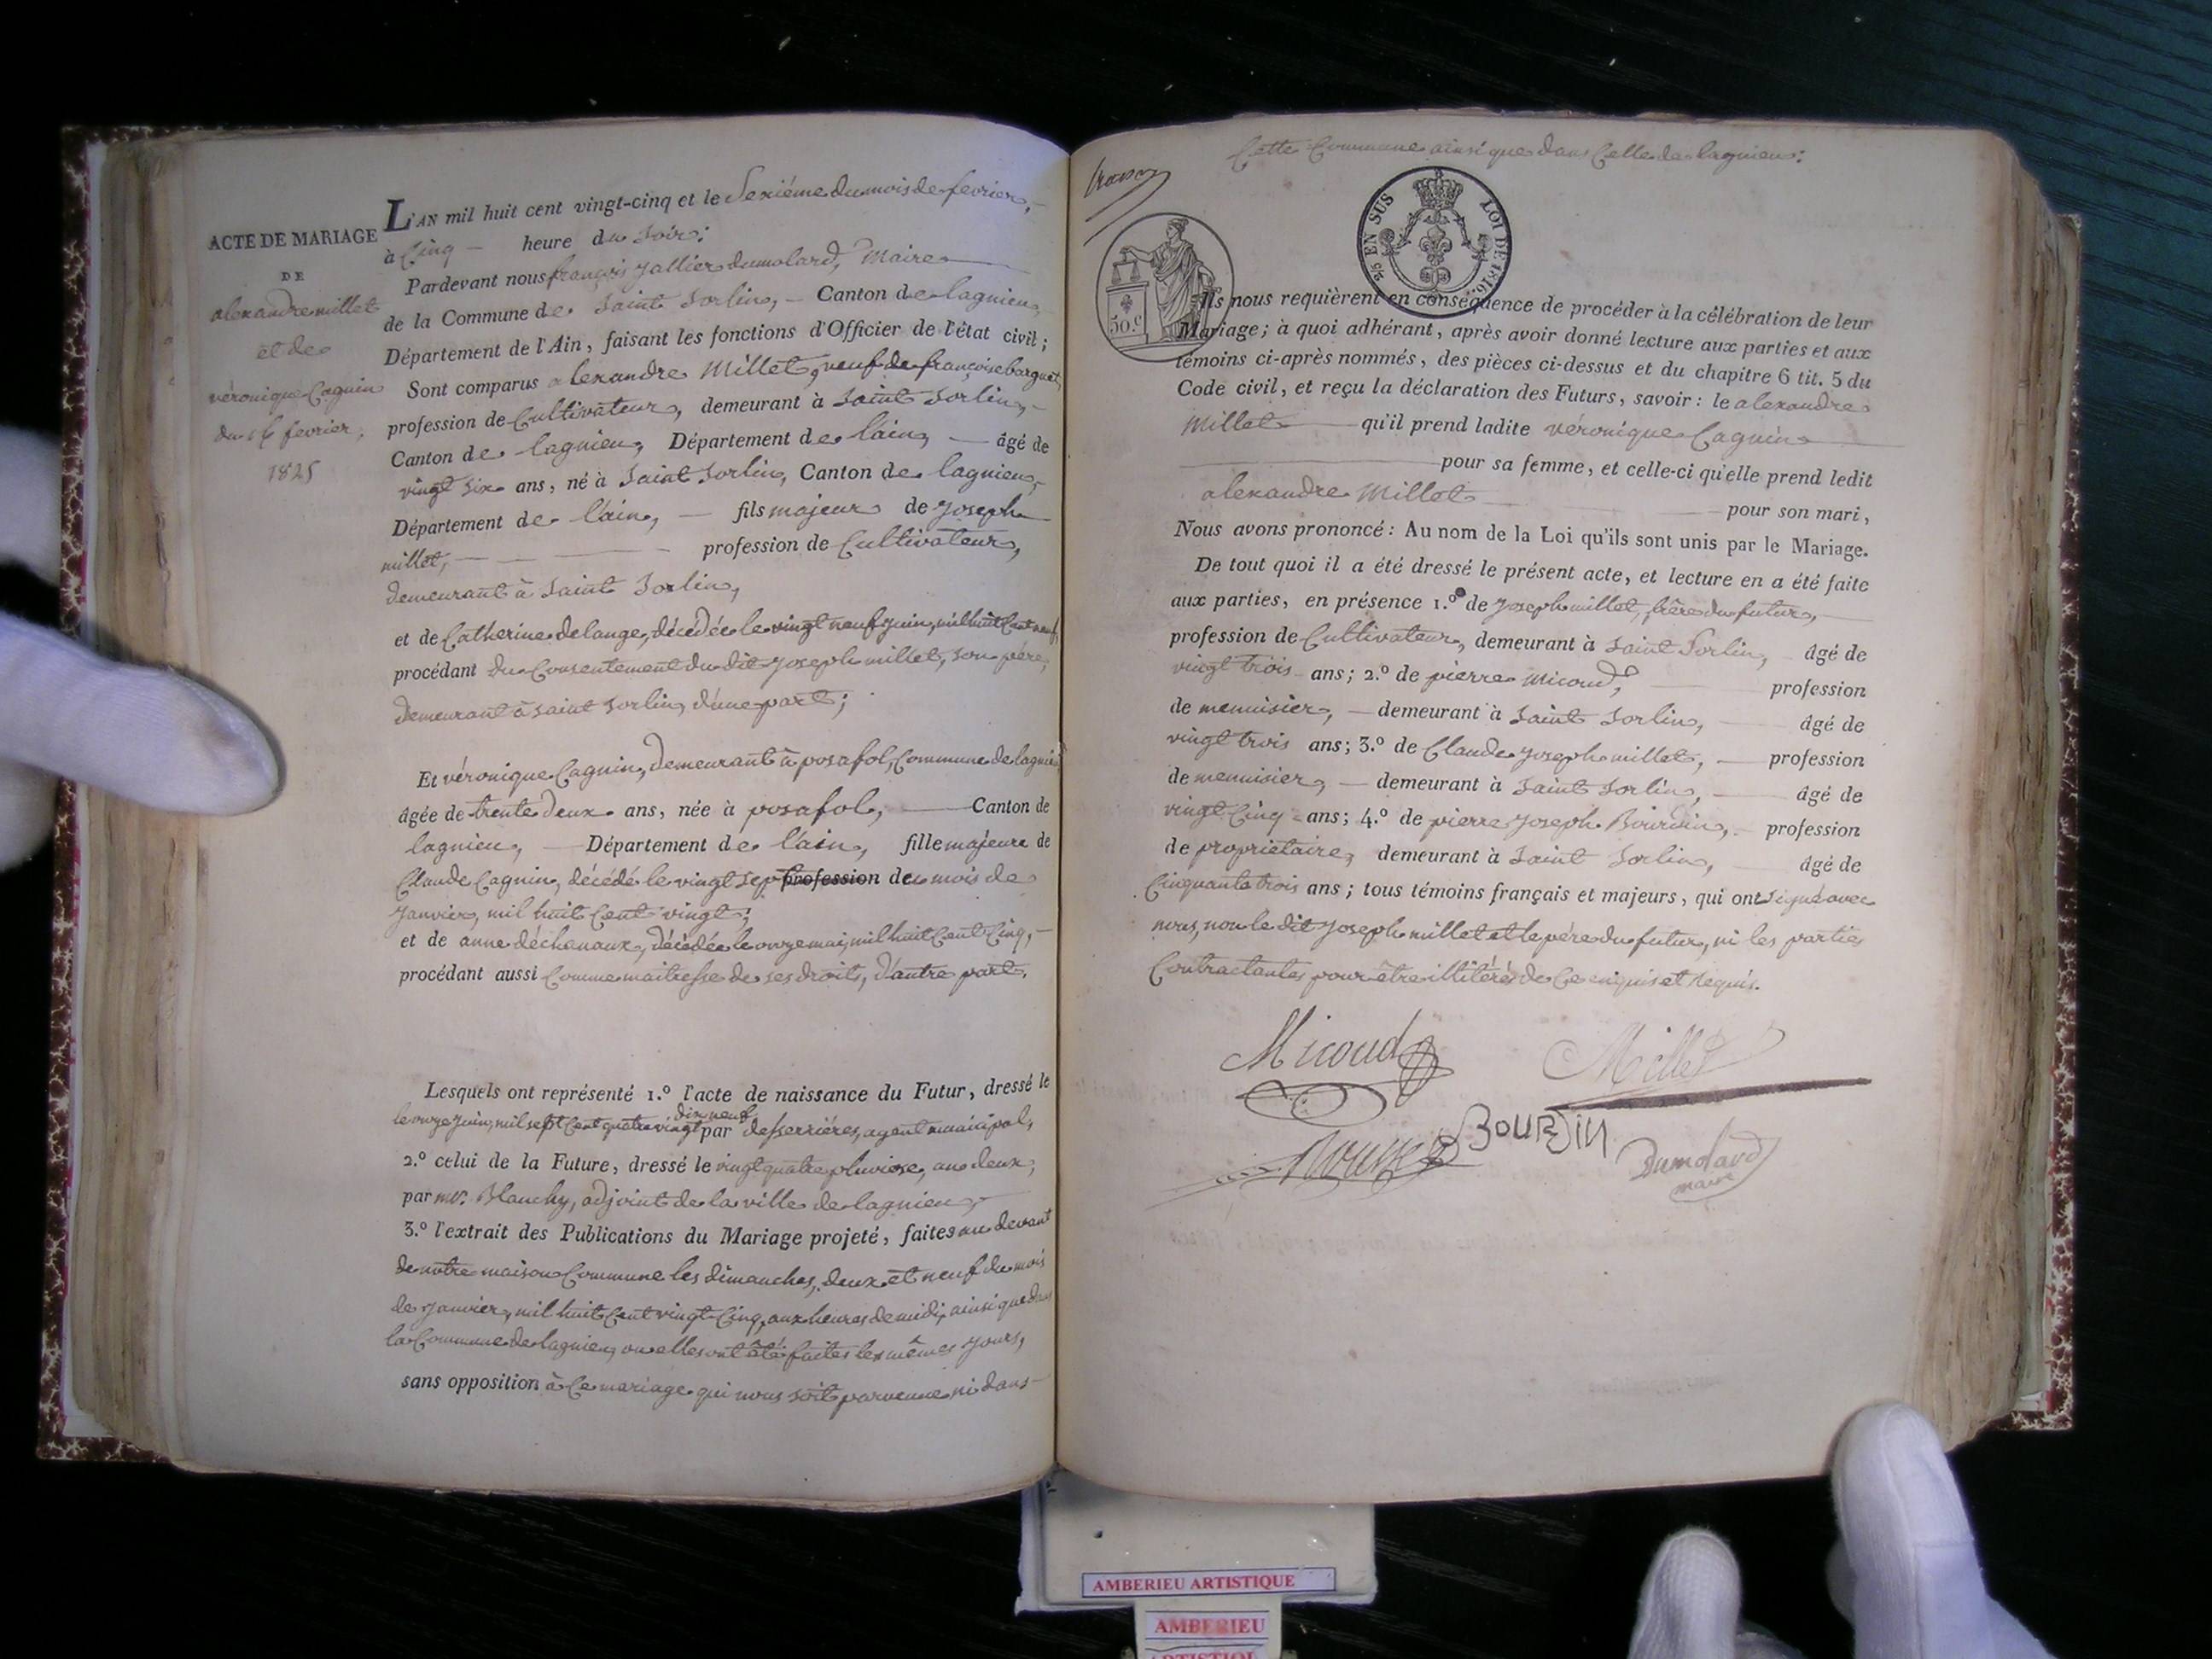 ACTE DE MARIAGE
DE
alexandre millet
et de
véronique Cagnin
du 16 fevrier,
1825
L'AN mil huit cent vingt-cinq et le Sexiéme du mois de fevrier,
à Cinq heure du Soir;
Pardevant nous françois Jallier dumolard, Maire
de la Commune de Saint Sorlin, Canton de lagnieu,
Département de l'Ain, faisant les fonctions d'Officier de l'état civil;
Sont comparus alexandre Millet, veuf de françoise barquet,
profession de Cultivateur, demeurant à Saint Sorlin,
Canton de lagnieu, Département de l'ain, âgé de
vingt six ans, né à Saint Sorlin, Canton de lagnieu,
Département de l'ain, fils majeur de Joseph
millet, profession de Cultivateur,
demeurant à Saint Sorlin,
et de Catherine delange, décédée le vingt neuf juin, mil huit Cent neuf,
procédant du Consentement du dit Joseph millet, son père,
demeurant à Saint Sorlin, d'une part;
Et véronique Cagnin, demeurant à posafol, Commune de lagnieu
âgée de trente deux ans, née à posafol, Canton de
lagnieu, Département de l'ain, fille majeure de
Claude Cagnin, décédé le vingt sept profession du mois de
Janvier, mil huit Cent vingt;
et de anne déchenaux, décédée le onze mai, mil huit Cent Cinq,
procédant aussi Comme maitresse de ses droits, d'autre part.
Lesquels ont représenté 1.º l'acte de naissance du Futur, dressé le
le onze juin, mil sept Cent quatre vingt dix neuf par desserriéres, agent municipal,
2.º celui de la Future, dressé le vingt quatre pluviose, an deux,
par mr. Blanchy, adjoint de la ville de lagnieu
3.º l'extrait des Publications du Mariage projeté, faites au devant
de notre maison Commune les dimanches, deux et neuf du mois
de Janvier, mil huit Cent vingt-Cinq, aux heures de midi, ainsi que dans
la Commune de lagnieu, ou elles ont été faites les mêmes Jours,
sans opposition à Ce mariage qui nous soit parvenue ni dans
Cette Commune ainsi que dans Celle de lagnieu;
EN SUS
LOI DE 1816
50.c
Ils nous requièrent en conséquence de procéder à la célébration de leur
Mariage; à quoi adhérant, après avoir donné lecture aux parties et aux
témoins ci-après nommés, des pièces ci-dessus et du chapitre 6 tit. 5 du
Code civil, et reçu la déclaration des Futurs, savoir: le alexandre
Millet qu'il prend ladite véronique Cagnin
pour sa femme, et celle-ci qu'elle prend ledit
alexandre Millet
pour son mari,
Nous avons prononcé: Au nom de la Loi qu'ils sont unis par le Mariage.
De tout quoi il a été dressé le présent acte, et lecture en a été faite
aux parties, en présence 1.º de Joseph millet, frère du futur,
profession de Cultivateur, demeurant à Saint Sorlin, âgé de
vingt trois ans; 2.º de pierre Micoud, profession
de menuisier, demeurant à Saint Sorlin, âgé de
vingt trois ans; 3.º de Claude Joseph millet, profession
de menuisier, demeurant à Saint Sorlin, âgé de
vingt Cinq ans; 4.º de pierre Joseph Bourdin, profession
de propriétaire, demeurant à Saint Sorlin, âgé de
Cinquante trois ans; tous témoins français et majeurs, qui ont signé avec
nous, non le dit Joseph millet et le père du futur, ni les parties
Contractantes pour être illitérés de Ce enquis et requis.
Micoud Millet
BOURDIN
Dumolard
maire
AMBERIEU ARTISTIQUE
AMBERIEU
ARTISTIQUE